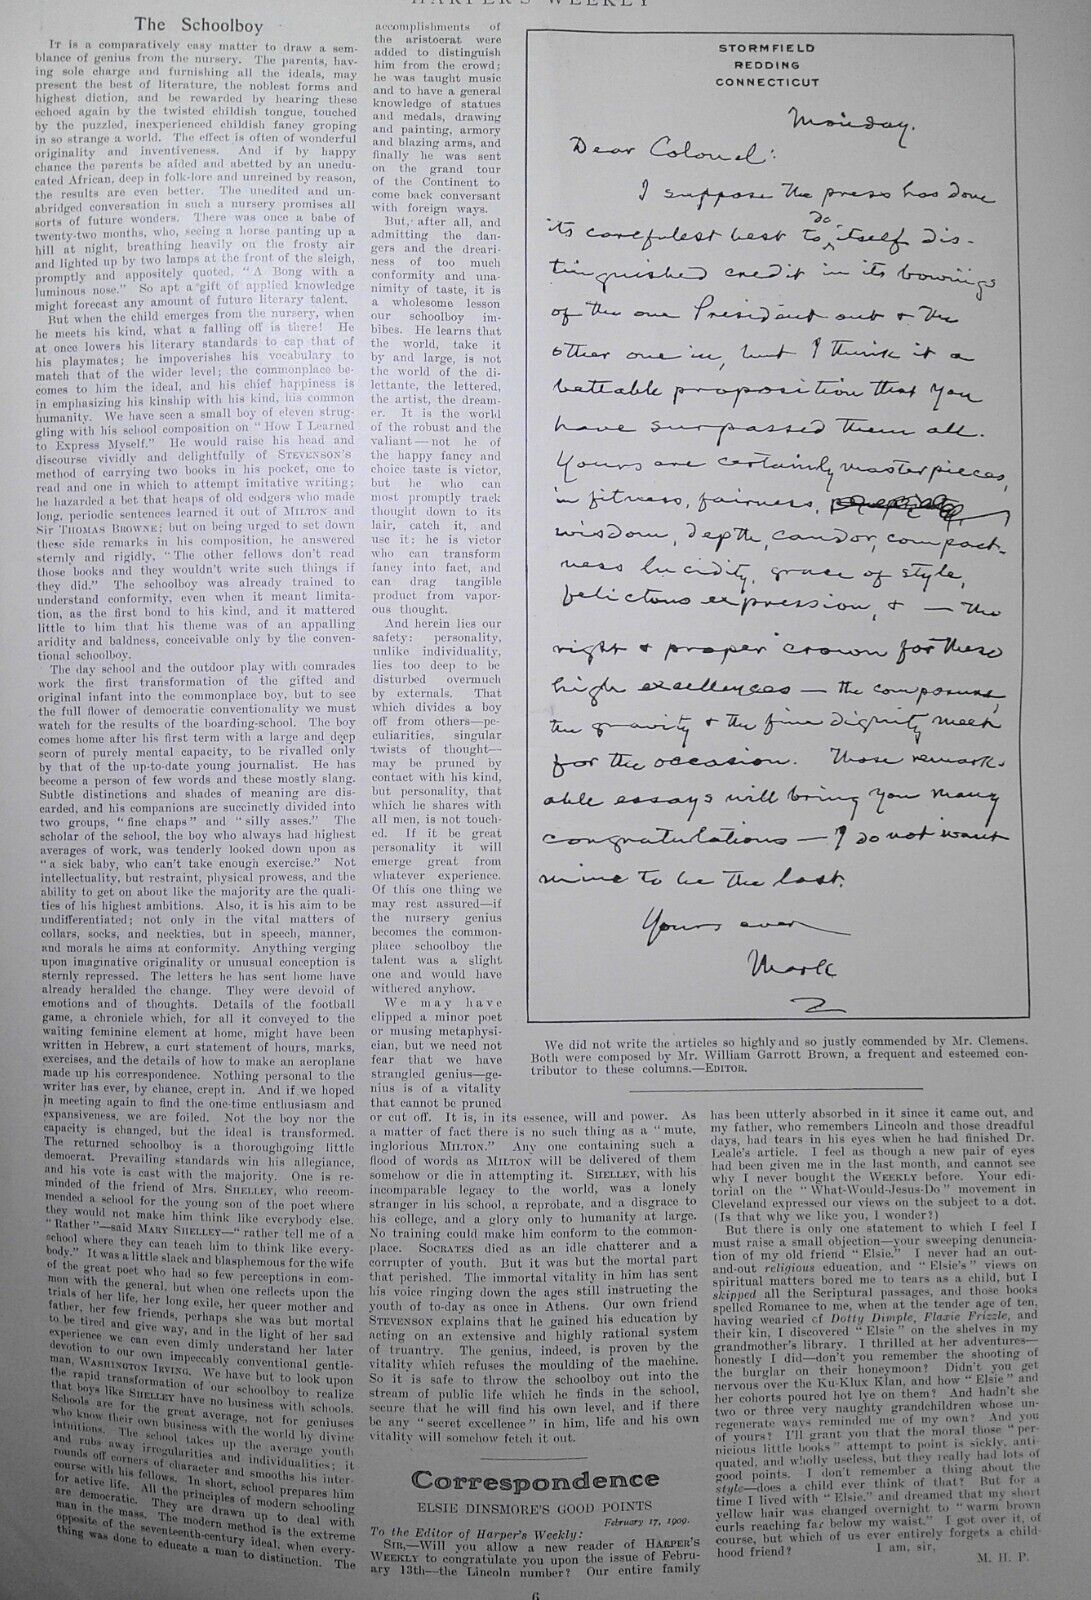 HARPER'S WEEKLY
The Schoolboy
IT is a comparatively easy matter to draw a sem-
blance of genius from the nursery. The parents, hav-
ing sole charge and furnishing all the ideals, may
present the best of literature, the noblest forms and
highest diction, and be rewarded by hearing these
echoed again by the twisted childish tongue, touched
by the puzzled, inexperienced childish fancy groping
in so strange a world. The effect is often of wonderful
originality and inventiveness. And if by happy
chance the parents be aided and abetted by an unedu-
cated African, deep in folk-lore and unreined by reason,
the results are even better. The unedited and un-
abridged conversation in such a nursery promises all
sorts of future wonders. There was once a babe of
twenty-two months, who, seeing a horse panting up a
hill at night, breathing heavily on the frosty air
and lighted up by two lamps at the front of the sleigh,
promptly and appositely quoted, "A Bong with a
luminous nose." So apt a gift of applied knowledge
might forecast any amount of future literary talent.
But when the child emerges from the nursery, when
he meets his kind, what a falling off is there! He
at once lowers his literary standards to cap that of
his playmates; he impoverishes his vocabulary to
match that of the wider level; the commonplace be-
comes to him the ideal, and his chief happiness is
in emphasizing his kinship with his kind, his common
humanity. We have seen a small boy of eleven strug-
gling with his school composition on "How I Learned
to Express Myself." He would raise his head and
discourse vividly and delightfully of STEVENSON'S
method of carrying two books in his pocket, one to
read and one in which to attempt imitative writing;
he hazarded a bet that heaps of old codgers who made
long, periodic sentences learned it out of MILTON and
Sir THOMAS BROWNE; but on being urged to set down
these side remarks in his composition, he answered
sternly and rigidly, "The other fellows don't read
those books and they wouldn't write such things if
they did." The schoolboy was already trained to
understand conformity, even when it meant limita-
tion, as the first bond to his kind, and it mattered
little to him that his theme was of an appalling
aridity and baldness, conceivable only by the conven-
tional schoolboy.
The day school and the outdoor play with comrades
work the first transformation of the gifted and
original infant into the commonplace boy, but to see
the full flower of democratic conventionality we must
watch for the results of the boarding-school. The boy
comes home after his first term with a large and deep
scorn of purely mental capacity, to be rivalled only
by that of the up-to-date young journalist. He has
become a person of few words and these mostly slang.
Subtle distinctions and shades of meaning are dis-
carded, and his companions are succinctly divided into
two groups, "fine chaps" and "silly asses." The
scholar of the school, the boy who always had highest
averages of work, was tenderly looked down upon as
"a sick baby, who can't take enough exercise." Not
intellectuality, but restraint, physical prowess, and the
ability to get on about like the majority are the quali-
ties of his highest ambitions. Also, it is his aim to be
undifferentiated; not only in the vital matters of
collars, socks, and neckties, but in speech, manner,
and morals he aims at conformity. Anything verging
upon imaginative originality or unusual conception is
sternly repressed. The letters he has sent home have
already heralded the change. They were devoid of
emotions and of thoughts. Details of the football
game, a chronicle which, for all it conveyed to the
waiting feminine element at home, might have been
written in Hebrew, a curt statement of hours, marks,
exercises, and the details of how to make an aeroplane
made up his correspondence. Nothing personal to the
writer has ever, by chance, crept in. And if we hoped
in meeting again to find the one-time enthusiasm and
expansiveness, we are foiled. Not the boy nor the
capacity is changed, but the ideal is transformed.
The returned schoolboy is a thoroughgoing little
democrat. Prevailing standards win his allegiance,
and his vote is cast with the majority. One is re-
minded of the friend of Mrs. SHELLEY, who recom-
mended a school for the young son of the poet where
they would not make him think like everybody else.
"Rather"—said MARY SHELLEY—"rather tell me of a
school where they can teach him to think like every-
body." It was a little slack and blasphemous for the wife
of the great poet who had so few perceptions in com-
mon with the general, but when one reflects upon the
trials of her life, her long exile, her queer mother and
father, her few friends, perhaps she was but mortal
to be tired and give way, and in the light of her sad
experience we can even dimly understand her later
devotion to our own impeccably conventional gentle-
man, WASHINGTON IRVING. We have but to look upon
the rapid transformation of our schoolboy to realize
that boys like SHELLEY have no business with schools.
Schools are for the great average, not for geniuses
who know their own business with the world by divine
intuitions. The school takes up the average youth
and rubs away irregularities and individualities; it
rounds off corners of character and smooths his inter-
course with his fellows. In short, school prepares him
for active life. All the principles of modern schooling
are democratic. They are drawn up to deal with
man in the mass. The modern method is the extreme
opposite of the seventeenth-century ideal, when every-
thing was done to educate a man to distinction. The
accomplishments of
the aristocrat were
added to distinguish
him from the crowd;
he was taught music
and to have a general
knowledge of statues
and medals, drawing
and painting, armory
and blazing arms, and
finally he was sent
on the grand tour
of the Continent to
come back conversant
with foreign ways.
But, after all, and
admitting the dan-
gers and the dreari-
ness of too much
conformity and una-
nimity of taste, it is
a wholesome lesson
our schoolboy im-
bibes. He learns that
the world, take it
by and large, is not
the world of the di-
lettante, the lettered,
the artist, the dream-
er. It is the world
of the robust and the
valiant—not he of
the happy fancy and
choice taste is victor,
but he who can
most promptly track
thought down to its
lair, catch it, and
use it; he is victor
who can transform
fancy into fact, and
can drag tangible
product from vapor-
ous thought.
And herein lies our
safety: personality,
unlike individuality,
lies too deep to be
disturbed overmuch
by externals. That
which divides a boy
off from others—pe-
culiarities, singular
twists of thought—
may be pruned by
contact with his kind,
but personality, that
which he shares with
all men, is not touch-
ed. If it be great
personality it will
emerge great from
whatever experience.
Of this one thing we
may rest assured—if
the nursery genius
becomes the common-
place schoolboy the
talent was a slight
one and would have
withered anyhow.
We may have
clipped a minor poet
or musing metaphysi-
cian, but we need not
fear that we have
strangled genius—ge-
nius is of a vitality
that cannot be pruned
or cut off. It is, in its essence, will and power. As
a matter of fact there is no such thing as a "mute,
inglorious MILTON." Any one containing such a
flood of words as MILTON will be delivered of them
somehow or die in attempting it. SHELLEY, with his
incomparable legacy to the world, was a lonely
stranger in his school, a reprobate, and a disgrace to
his college, and a glory only to humanity at large.
No training could make him conform to the common-
place. SOCRATES died as an idle chatterer and a
corrupter of youth. But it was the mortal part
that perished. The immortal vitality in him has sent
his voice ringing down the ages still instructing the
youth of to-day as once in Athens. Our own friend
STEVENSON explains that he gained his education by
acting on an extensive and highly rational system
of truantry. The genius, indeed, is proven by the
vitality which refuses the moulding of the machine.
So it is safe to throw the schoolboy out into the
stream of public life which he finds in the school,
secure that he will find his own level, and if there
be any "secret excellence" in him, life and his own
vitality will somehow fetch it out.
Correspondence
ELSIE DINSMORE'S GOOD POINTS
February 17, 1909.
To the Editor of Harper's Weekly:
SIR,—Will you allow a new reader of HARPER'S
WEEKLY to congratulate you upon the issue of Febru-
ary 13th—the Lincoln number? Our entire family
STORMFIELD
REDDING
CONNECTICUT
Monday.
Dear Colonel:
I suppose the press has done
its carefulest best to do itself dis-
tinguished credit in its bowings
of the one President out & the
other one in, but I think it a
bettable proposition that you
have surpassed them all.
Yours are certainly masterpieces,
in fitness, fairness,
wisdom, depth, candor, compact-
ness lucidity, grace of style,
felictous expression, & — the
right & proper crown for these
high excellences — the composure,
the gravity & the fine dignity meet
for the occasion. Those remark-
able essays will bring you many
congratulations — I do not want
mine to be the last.
Yours ever
Mark
We did not write the articles so highly and so justly commended by Mr. Clemens.
Both were composed by Mr. William Garrott Brown, a frequent and esteemed con-
tributor to these columns.—EDITOR.
has been utterly absorbed in it since it came out, and
my father, who remembers Lincoln and those dreadful
days, had tears in his eyes when he had finished Dr.
Leale's article. I feel as though a new pair of eyes
had been given me in the last month, and cannot see
why I never bought the WEEKLY before. Your edi-
torial on the "What-Would-Jesus-Do" movement in
Cleveland expressed our views on the subject to a dot.
(Is that why we like you, I wonder?)
But there is only one statement to which I feel I
must raise a small objection—your sweeping denuncia-
tion of my old friend "Elsie." I never had an out-
and-out religious education, and "Elsie's" views on
spiritual matters bored me to tears as a child, but I
skipped all the Scriptural passages, and those books
spelled Romance to me, when at the tender age of ten,
having wearied of Dotty Dimple, Flaxie Frizzle, and
their kin, I discovered "Elsie" on the shelves in my
grandmother's library. I thrilled at her adventures—
honestly I did—don't you remember the shooting of
the burglar on their honeymoon? Didn't you get
nervous over the Ku-Klux Klan, and how "Elsie" and
her cohorts poured hot lye on them? And hadn't she
two or three very naughty grandchildren whose un-
regenerate ways reminded me of my own? And you
of yours? I'll grant you that the moral those "per-
nicious little books" attempt to point is sickly, anti-
quated, and wholly useless, but they really had lots of
good points. I don't remember a thing about the
style—does a child ever think of that? But for a
time I lived with "Elsie," and dreamed that my short
yellow hair was changed overnight to "warm brown
curls reaching far below my waist." I got over it, of
course, but which of us ever entirely forgets a child-
hood friend? I am, sir,
M. H. P.
6